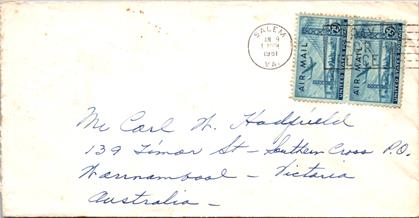 SALEM
JAN 9
1951
VA.
AIR MAIL
25¢
UNITED STATES POSTAGE
AIR MAIL
25¢
UNITED STATES POSTAGE
Mr Carl W. Hadfield
139 Timor St - Southern Cross P.O.
Warrnambool - Victoria
Australia -